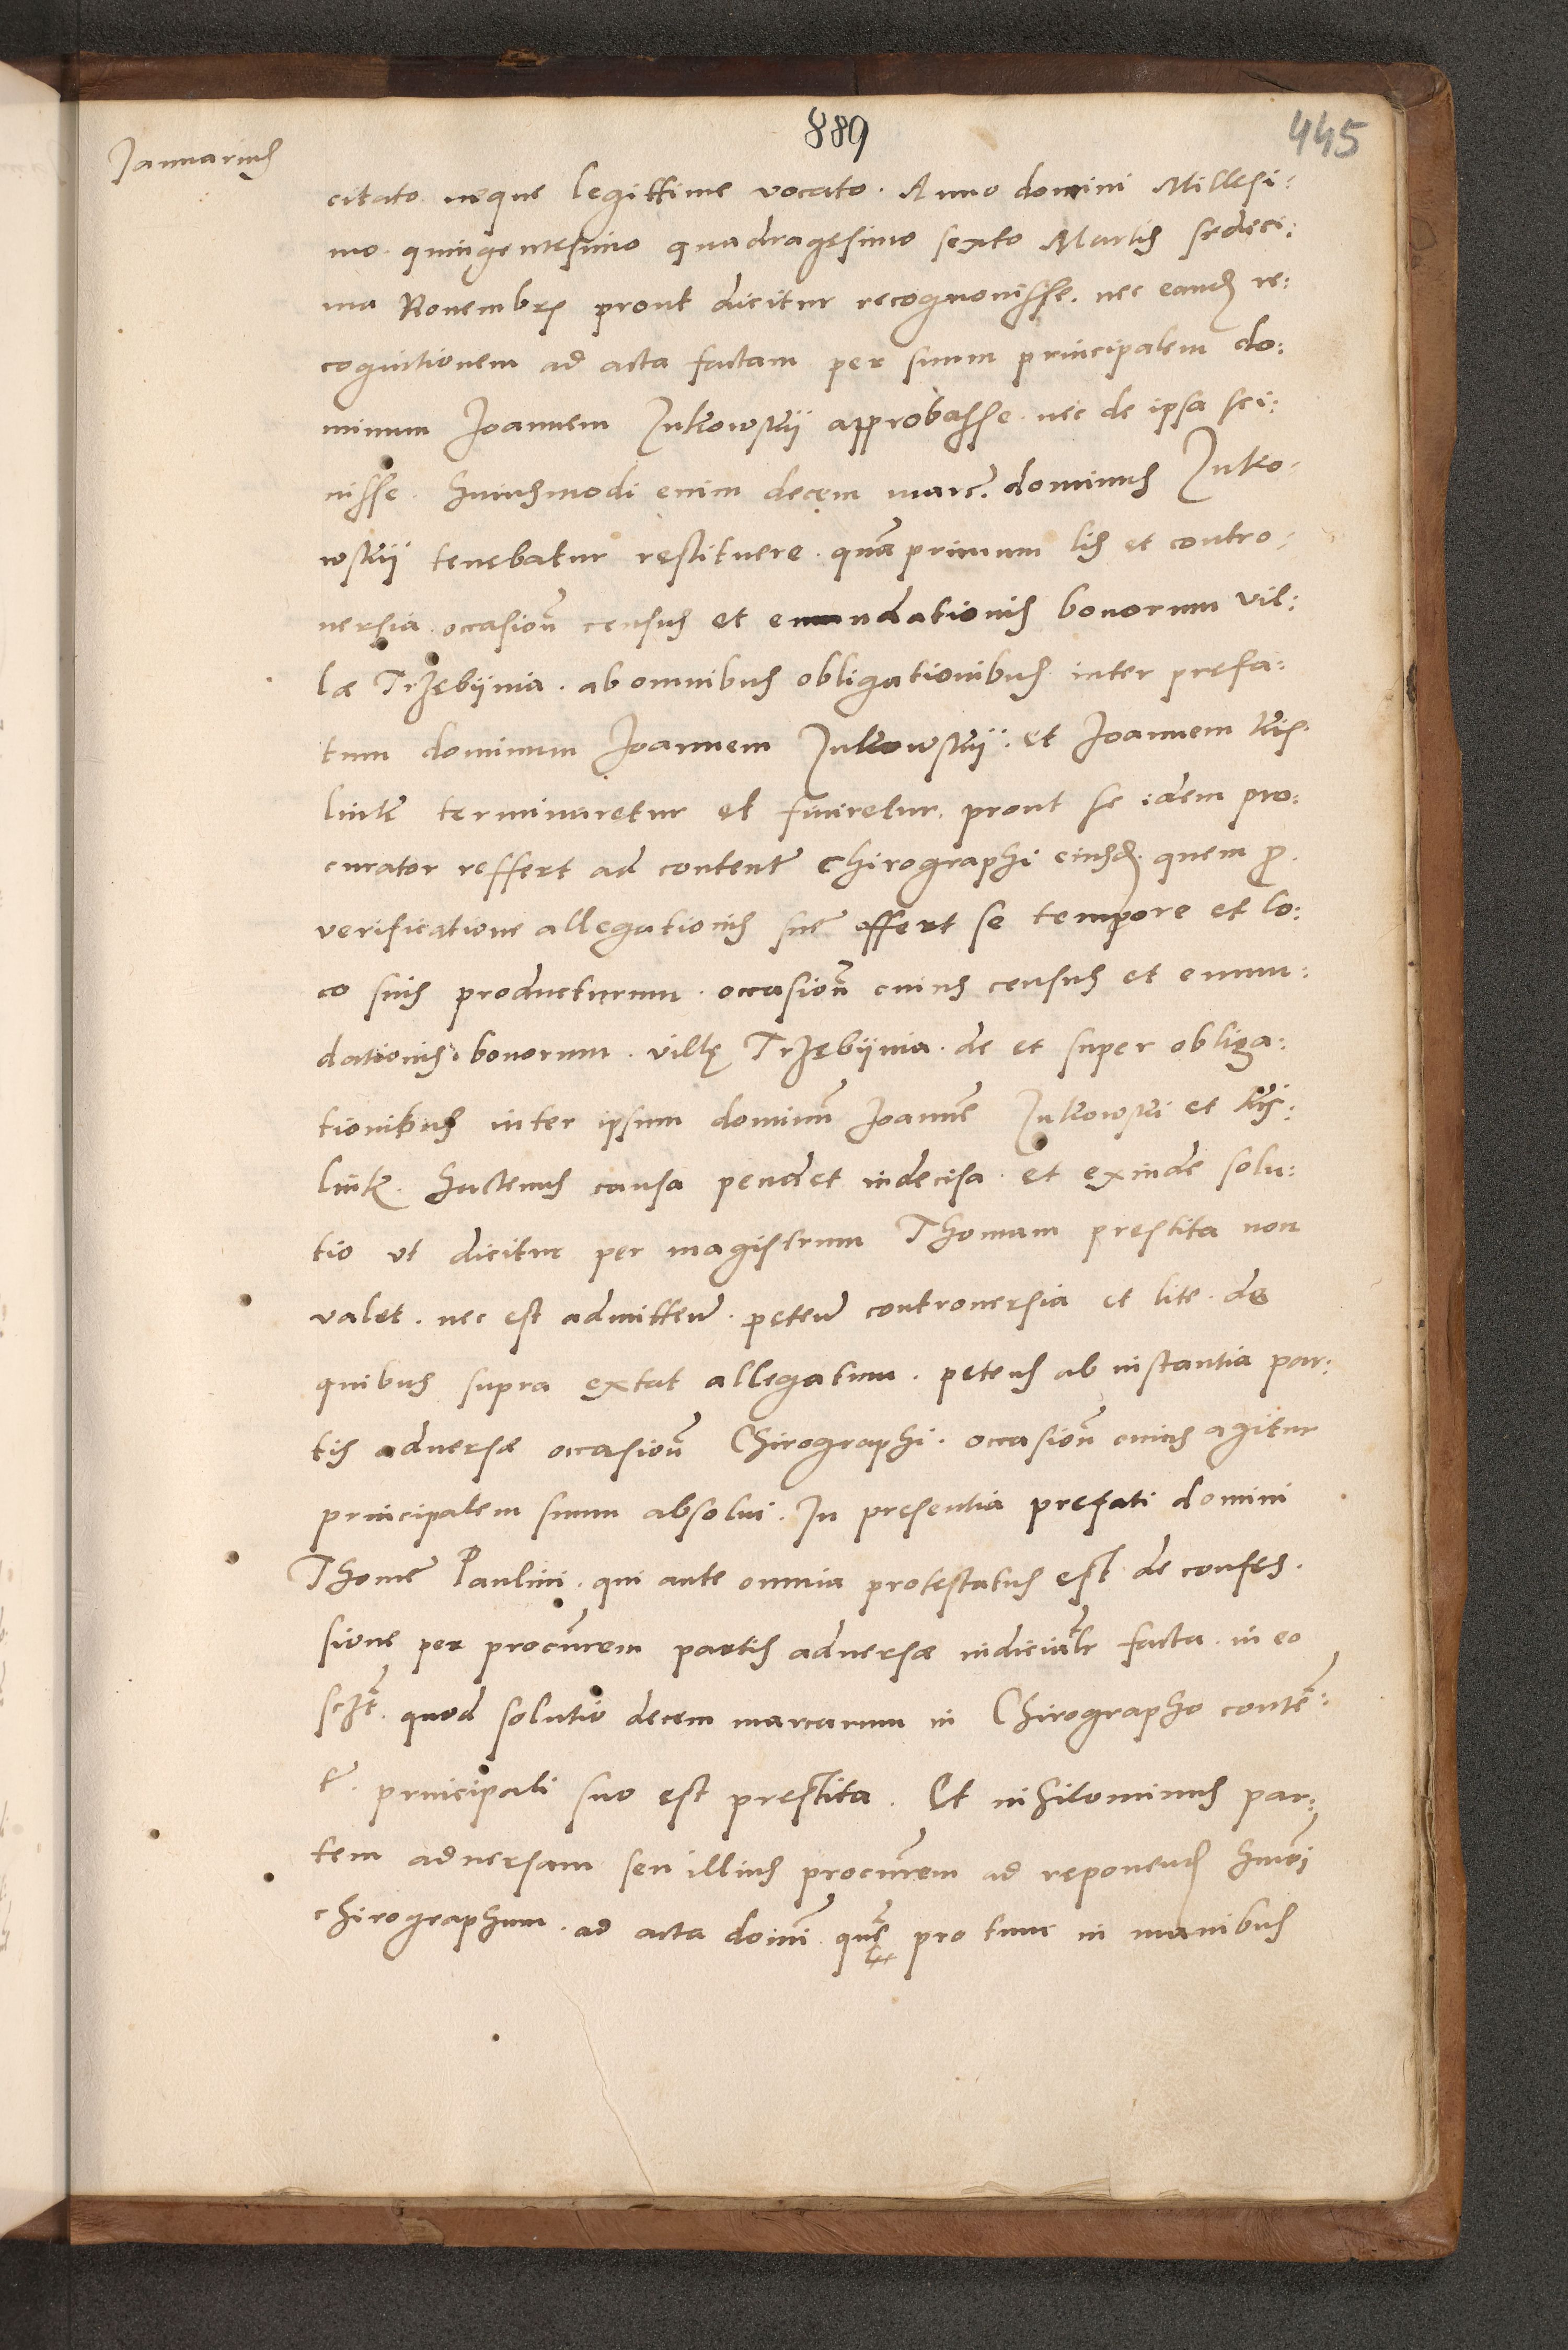 889
445
Januarius
citato neque legittime vocato. Anno domini Millesi:
mo quingentesimo quadragesimo sexto Martis sedeci:
ma Novembris prout dicitur recognovisse. nec eand re:
cognitionem ad acta factam per suum principalem do:
minum Joannem Zukowskij approbasse nec de ipsa sci:
visse. Huiusmodi enim decem marc. dominus Zuko:
wskij tenebatur restituere. quam primum lis et contro:
versia occasion census et emundationis bonorum vil:
læ Trzebijnia. ab omnibus obligationibus inter prefa:
tum dominum Joannem Zukowskij. et Joannem Kis:
link terminaretur et finiretur. prout se idem pro:
curator reffert ad content Chirographi eiusd. quem p.
verificatione allegationis sue offert se tempore et lo:
co suis producturum. occasion cuius census et emun:
dationis bonorum. villę Trzebijnia. de et super obliga:
tionibus inter ipsum dominum Joannem Zukowski et Kis:
link. hactenus causa pendet indecisa. et exinde solu:
tio ut dicitur per magistrum Thomam prestita non
valet. nec est admittend. petend controversia et lite de
quibus supra extat allegatum. petens ab instantia par:
tis adversæ occasion Chirographi. occasion cuius agitur
principalem suum absolvi. In presentia prefati domini
Thome Paulini. qui ante omnia protestatus est de confes.
sione per procurem partis adversæ judicialr facta. in eo
sczt. quod solutio decem marcarum in Chirographo conten:
t. principali suo est prestita. Et nihilominus par:
tem adversam seu illius procurem ad reponend huiusmodi
chirographum. ad acta domini que pro tunc in manibus